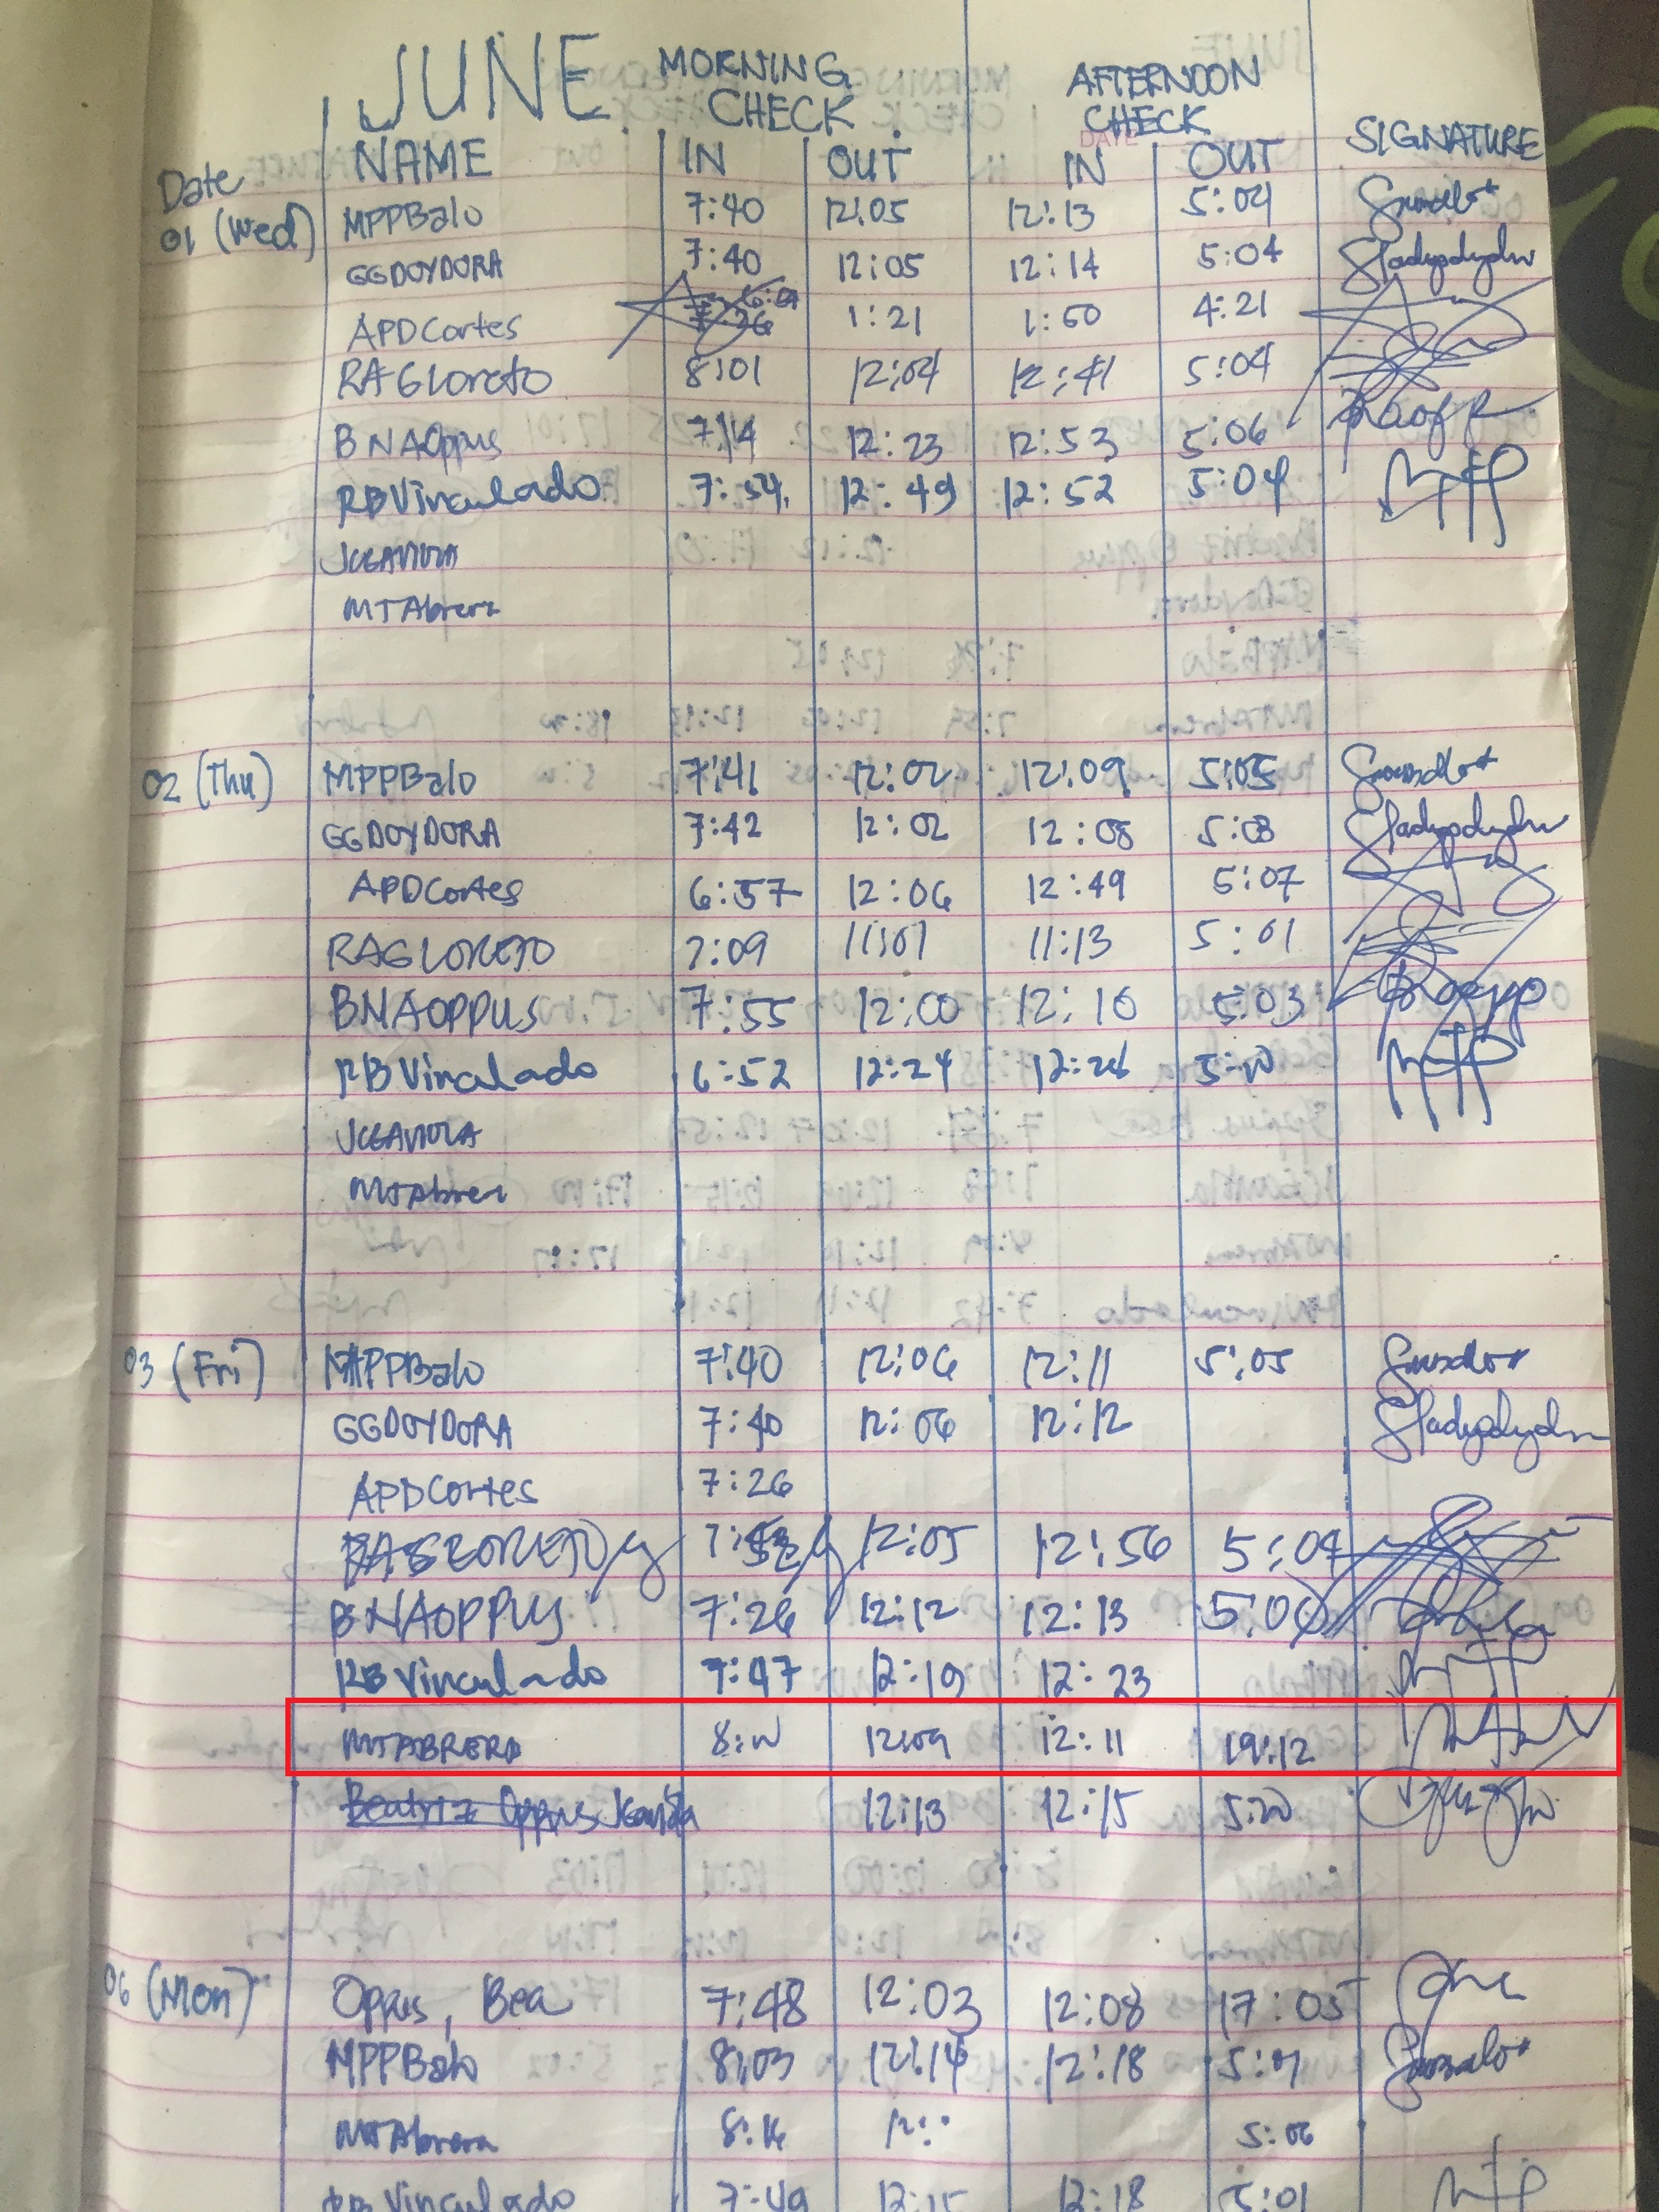 JUNE MORNING CHECK AFTERNOON CHECK
DATE
Date NAME IN OUT IN OUT SIGNATURE
01 (Wed) MPPBalo 7:40 12:05 12:13 5:04
GGDOYDORA 7:40 12:05 12:14 5:04
APDCortes 1:21 1:50 4:21
RAGLoreto 8:01 12:04 12:41 5:04
BNAOppus 7:14 12:23 12:53 5:06
RBVinculado 7:54 12:49 12:52 5:04
JCGAVIOLA
MTAbrera
02 (Thu) MPPBalo 7:41 12:02 12:09 5:05
GGDOYDORA 7:42 12:02 12:08 5:03
APDCortes 6:57 12:06 12:49 5:07
RAGLORETO 7:09 11:01 11:13 5:01
BNAOPPUS 7:55 12:00 12:10 5:03
RBVinculado 6:52 12:24 12:26
JCGAVIOLA
MTAbrera
03 (Fri) MPPBalo 7:40 12:06 12:11 5:05
GGDOYDORA 7:40 12:06 12:12
APDCortes 7:26
RAGLORETO 12:05 12:56 5:04
BNAOPPUS 7:26 12:12 12:13
RBVinculado 7:47 12:19 12:23
MTABRERA 12:09 12:11 19:12
Beatriz Oppus 12:13 12:15 5:20
06 (Mon) Oppus, Bea 7:48 12:03 12:08 17:05
MPPBalo 8:03 12:14 12:18
MTAbrera 8:16 5:06
RBVinculado 7:49 12:15 12:18 5:01